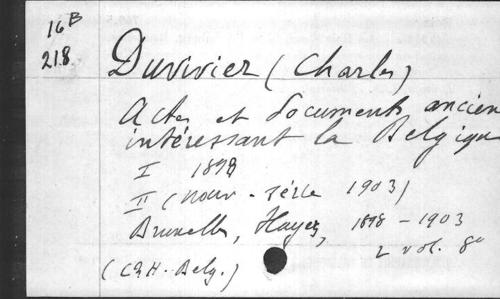 16 B
218.
Duvivier (Charles)
Actes et documents anciens
intéressant la Belgique
I 1898
II (nouv. série 1903)
Bruxelles, Hayez, 1898 - 1903
2 vol. 8º
(CRH-Belg.)